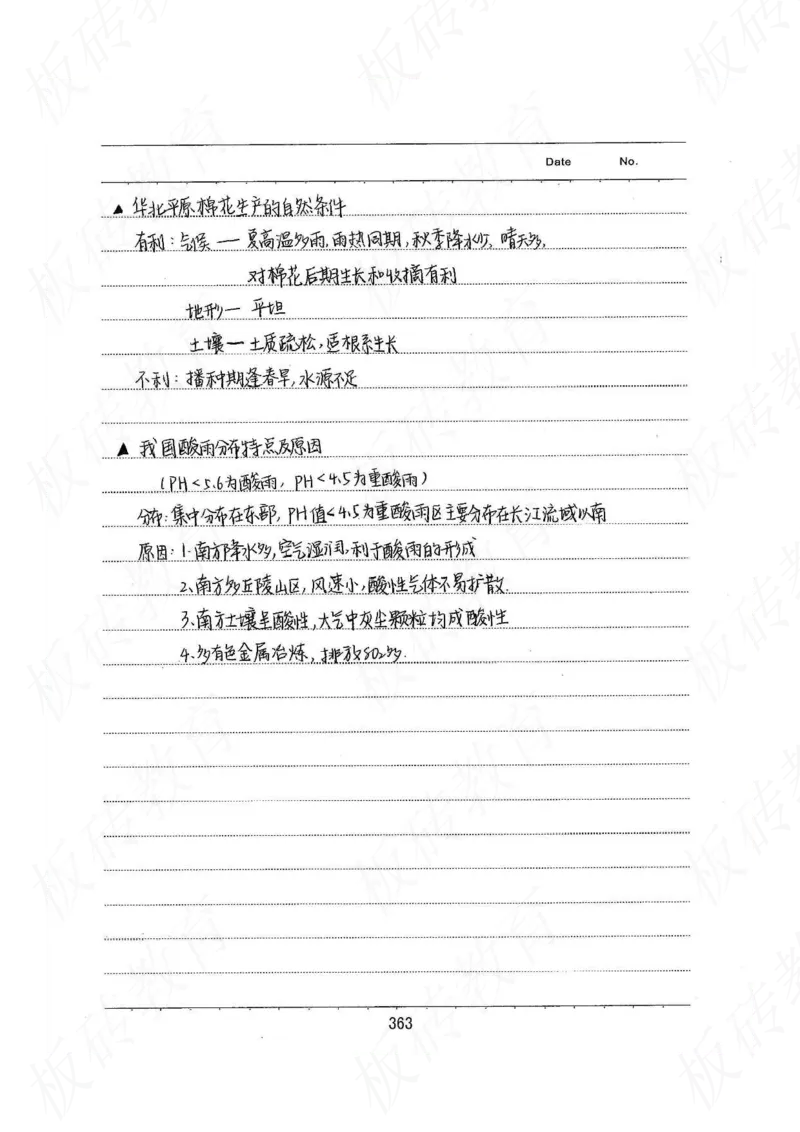 Date No.
▲ 华北平原棉花生产的自然条件
有利：气候 — 夏高温多雨，雨热同期，秋季降水少，晴天多，
对棉花后期生长和收摘有利
地形 — 平坦
土壤 — 土质疏松，适根系生长
不利：播种期逢春旱，水源不足
▲ 我国酸雨分布特点及原因
（PH＜5.6为酸雨，PH＜4.5为重酸雨）
分布：集中分布在东部，PH值＜4.5为重酸雨区主要分布在长江流域以南
原因：1.南方降水多，空气湿润，利于酸雨的形成
2.南方多丘陵山区，风速小，酸性气体不易扩散.
3.南方土壤呈酸性，大气中灰尘颗粒均成酸性
4.多有色金属冶炼，排放SO2多.
363
板砖教育